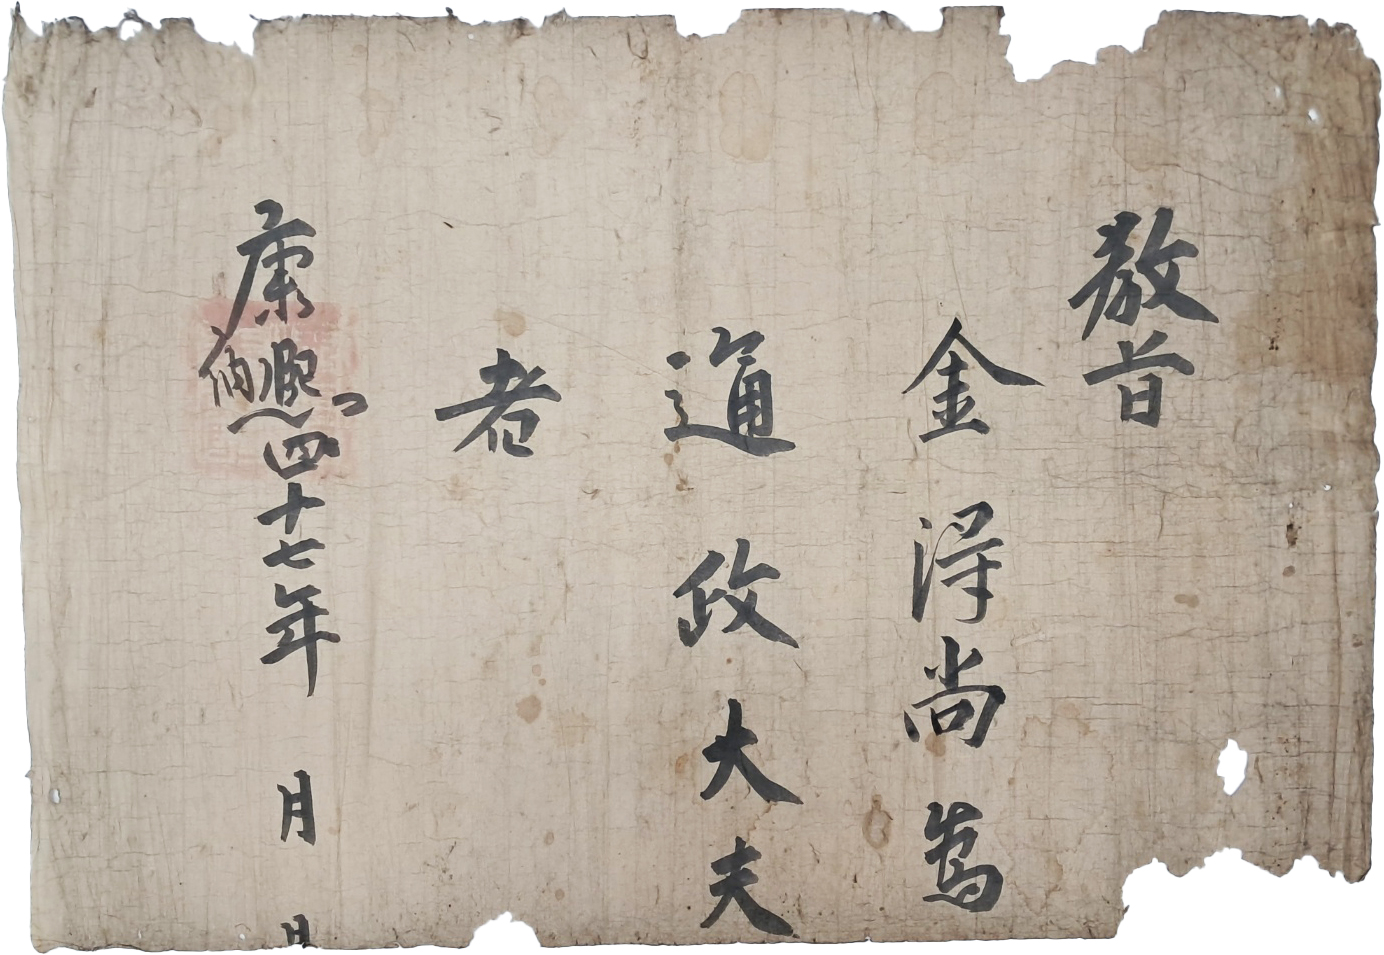 教旨
金淂尚爲
通政大夫
者
康熙四十七年 月 日
納